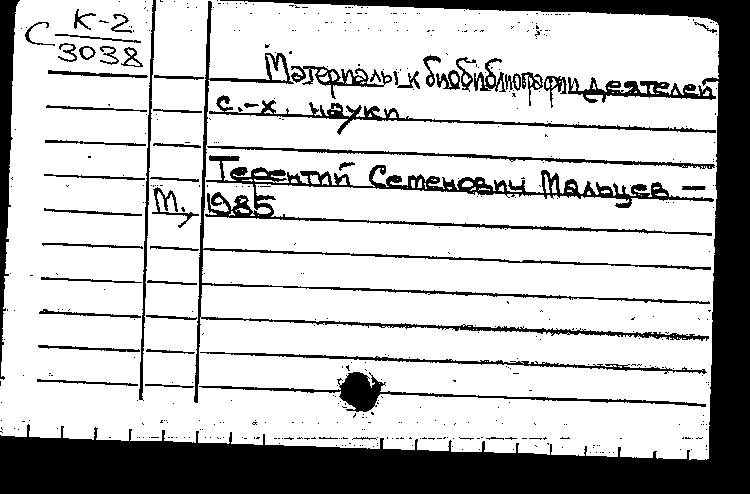 С К-2
3038
Материалы к биобиблиографии деятелей
с.-х. науки.
Терентий Семенович Мальцев —
М., 1985.